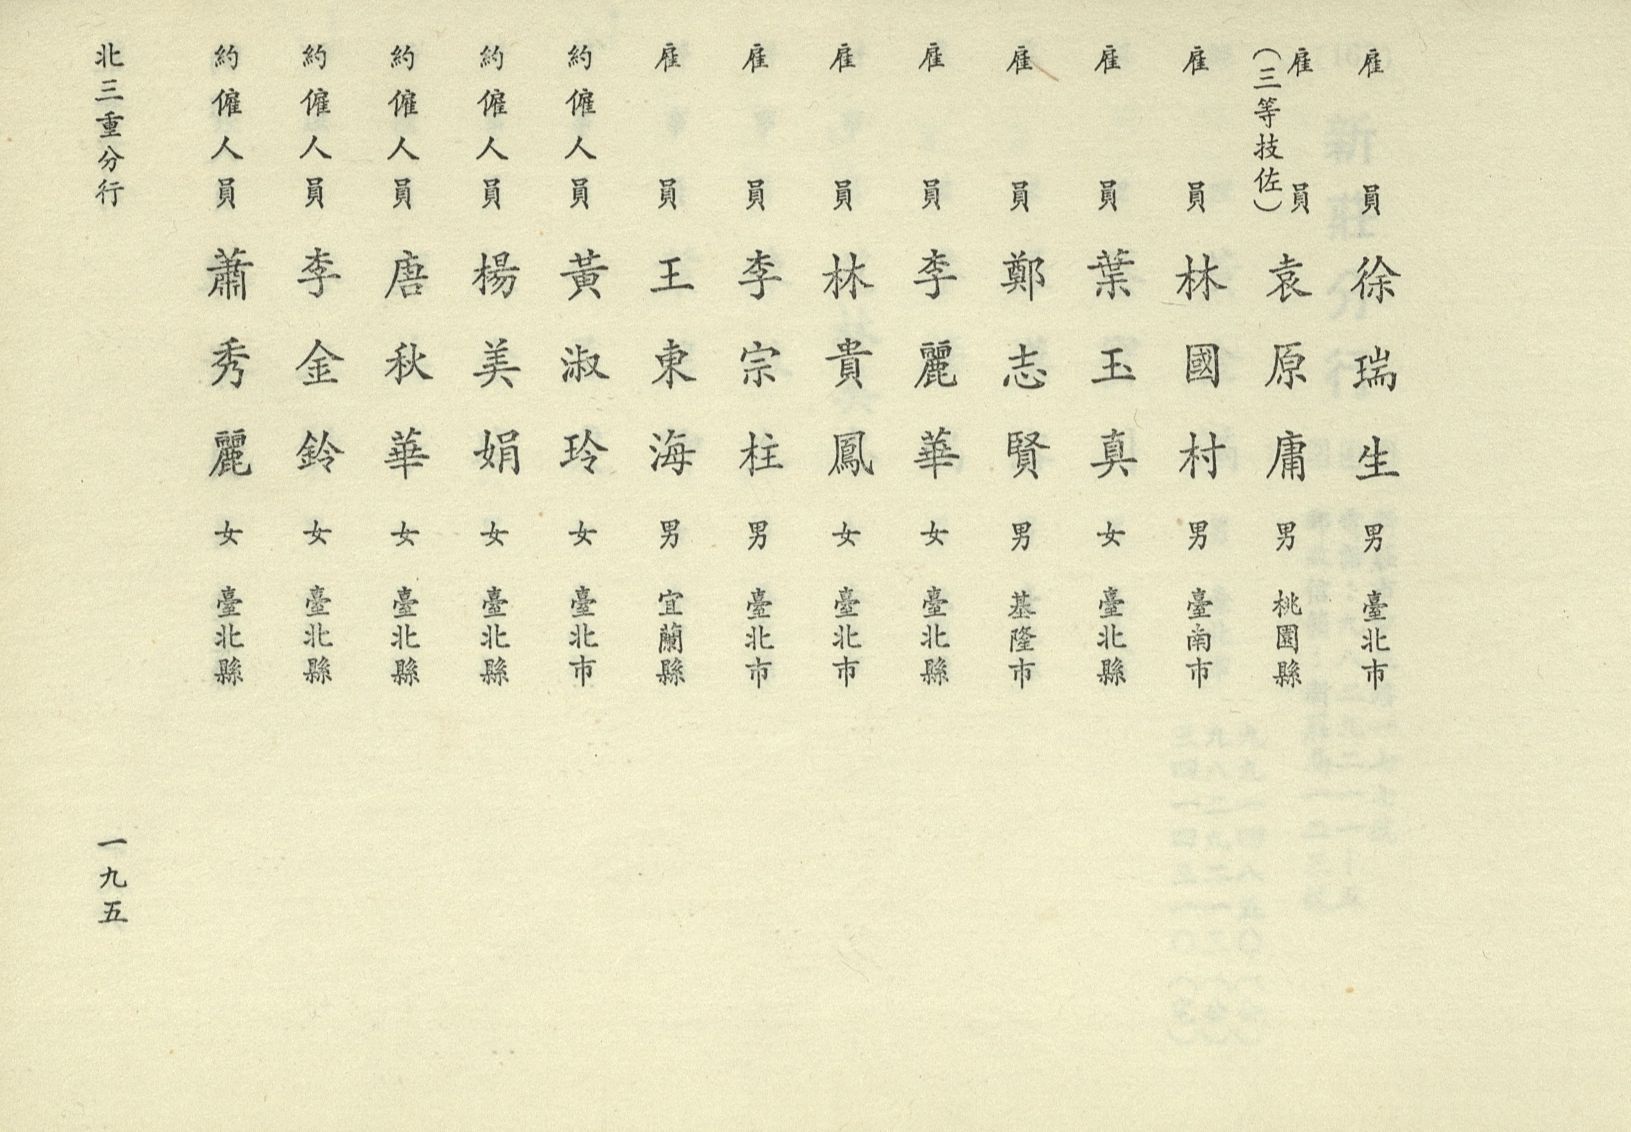 雇員 徐瑞生 男 臺北市
雇員（三等技佐） 袁原庸 男 桃園縣
雇員 林國村 男 臺南市
雇員 葉玉真 女 臺北縣
雇員 鄭志賢 男 基隆市
雇員 李麗華 女 臺北縣
雇員 林貴鳳 女 臺北市
雇員 李宗柱 男 臺北市
雇員 王東海 男 宜蘭縣
約僱人員 黃淑玲 女 臺北市
約僱人員 楊美娟 女 臺北縣
約僱人員 唐秋華 女 臺北縣
約僱人員 李金鈴 女 臺北縣
約僱人員 蕭秀麗 女 臺北縣
北三重分行 一九五